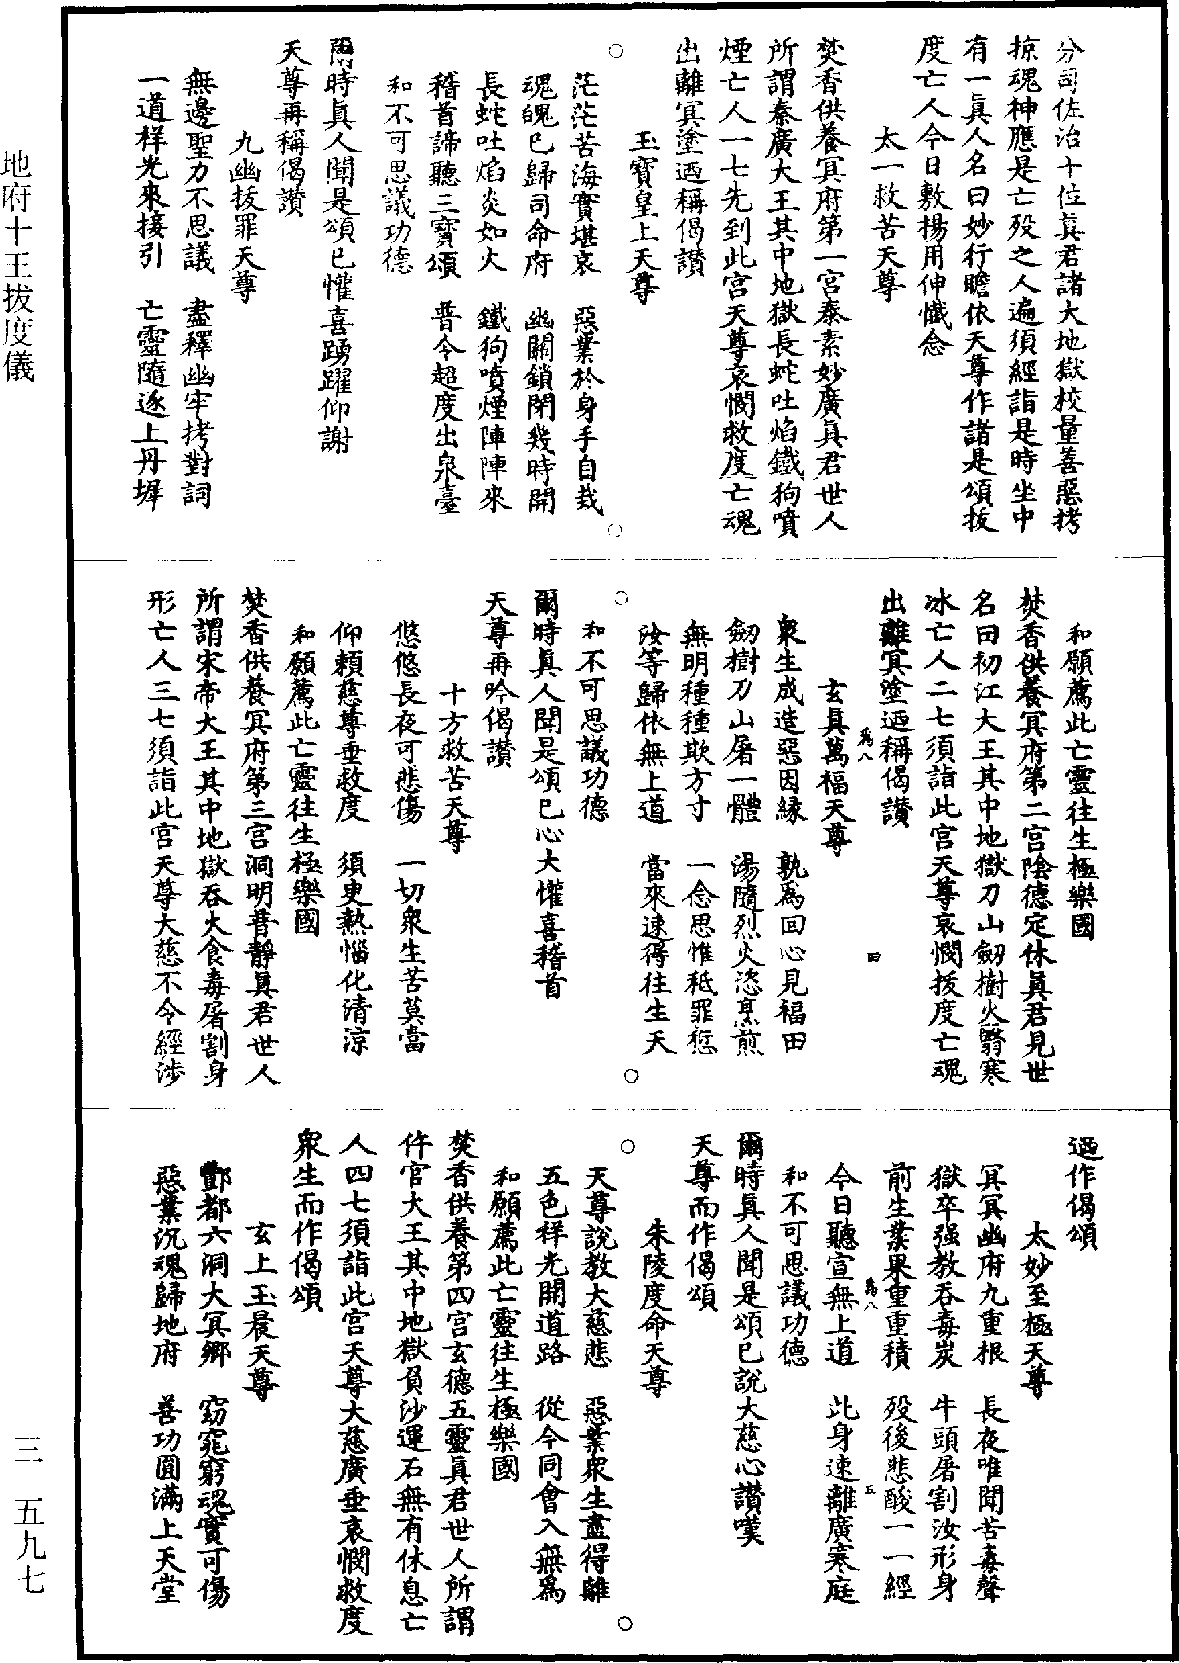 分司佐治十位眞君諸大地獄校量善惡拷
掠魂神應是亡歿之人遍須經詣是時坐中
有一眞人名曰妙行瞻依天尊作諸是頌拔
度亡人今日敷揚用伸懺念
太一救苦天尊
焚香供養冥府第一宮泰素妙廣眞君世人
所謂秦廣大王其中地獄長蛇吐焰鐵狗噴
煙亡人一七先到此宮天尊哀憫救度亡魂
出離冥塗迺稱偈讚
玉寶皇上天尊
○ 茫茫苦海實堪哀 惡業於身手自栽 ○
魂魄已歸司命府 幽關鎖閉幾時開
長蛇吐焰炎如火 鐵狗噴煙陣陣來
稽首諦聽三寶頌 普令超度出泉臺
和不可思議功德
爾時眞人聞是頌已懽喜踴躍仰謝
天尊再稱偈讚
九幽拔罪天尊
無邊聖力不思議 盡釋幽牢拷對詞
一道祥光來接引 亡靈隨逐上丹墀
和願薦此亡靈往生極樂國
焚香供養冥府第二宮陰德定休眞君見世
名曰初江大王其中地獄刀山劒樹火翳寒
冰亡人二七須詣此宮天尊哀憫拔度亡魂
出離冥塗迺稱偈讚
爲八 四
玄眞萬福天尊
衆生成造惡因緣 孰爲回心見福田
劒樹刀山屠一體 湯隨烈火恣烹煎
無明種種欺方寸 一念思惟秪罪愆
○ 汝等歸依無上道 當來速得往生天 ○
和不可思議功德
爾時眞人聞是頌已心大懽喜稽首
天尊再吟偈讚
十方救苦天尊
悠悠長夜可悲傷 一切衆生苦莫當
仰賴慈尊垂救度 須臾熱惱化清涼
和願薦此亡靈往生極樂國
焚香供養冥府第三宮洞明普靜眞君世人
所謂宋帝大王其中地獄吞火食毒屠割身
形亡人三七須詣此宮天尊大慈不令經涉
迺作偈頌
太妙至極天尊
冥冥幽府九重根 長夜唯聞苦毒聲
獄卒强教吞毒炭 牛頭屠割汝形身
前生業果重重積 歿後悲酸一一經
爲八 五
今日聽宣無上道 此身速離廣寒庭
和不可思議功德
爾時眞人聞是頌已說大慈心讚嘆
天尊而作偈頌
朱陵度命天尊
○ 天尊說教大慈悲 惡業衆生盡得離 ○
五色祥光開道路 從今同會入無爲
和願薦此亡靈往生極樂國
焚香供養第四宮玄德五靈眞君世人所謂
仵官大王其中地獄負沙運石無有休息亡
人四七須詣此宮天尊大慈廣垂哀憫救度
衆生而作偈頌
玄上玉晨天尊
酆都六洞大冥鄉 窈窕窮魂實可傷
惡業沉魂歸地府 善功圓滿上天堂
地府十王拔度儀
三 五九七